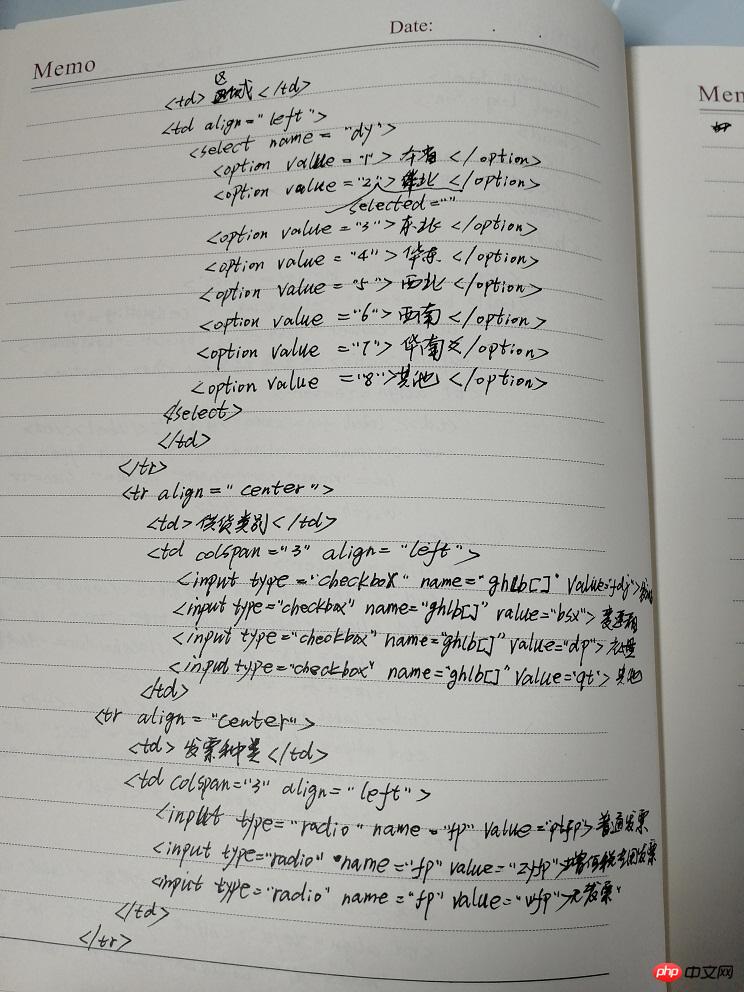 Memo
Date:
Mem
<td> 区域 </td>
<td align="left">
<select name="dy">
<option value="1"> 本省 </option>
<option value="2"> 华北 </option>
selected=""
<option value="3"> 东北 </option>
<option value="4"> 华东 </option>
<option value="5"> 西北 </option>
<option value="6"> 西南 </option>
<option value="7"> 华南 </option>
<option value="8"> 其他 </option>
</select>
</td>
</tr>
<tr align="center">
<td> 供货类别 </td>
<td colspan="3" align="left">
<input type="checkbox" name="ghlb[]" value="fdj">
<input type="checkbox" name="ghlb[]" value="bsx"> 变速箱
<input type="checkbox" name="ghlb[]" value="dp">
<input type="checkbox" name="ghlb[]" value="qt"> 其他
</td>
<tr align="center">
<td> 发票种类 </td>
<td colspan="3" align="left">
<input type="radio" name="fp" value="ptfp"> 普通发票
<input type="radio" name="fp" value="zyfp"> 增值税专用发票
<input type="radio" name="fp" value="wfp"> 无发票"
</td>
</tr>
php 中文网